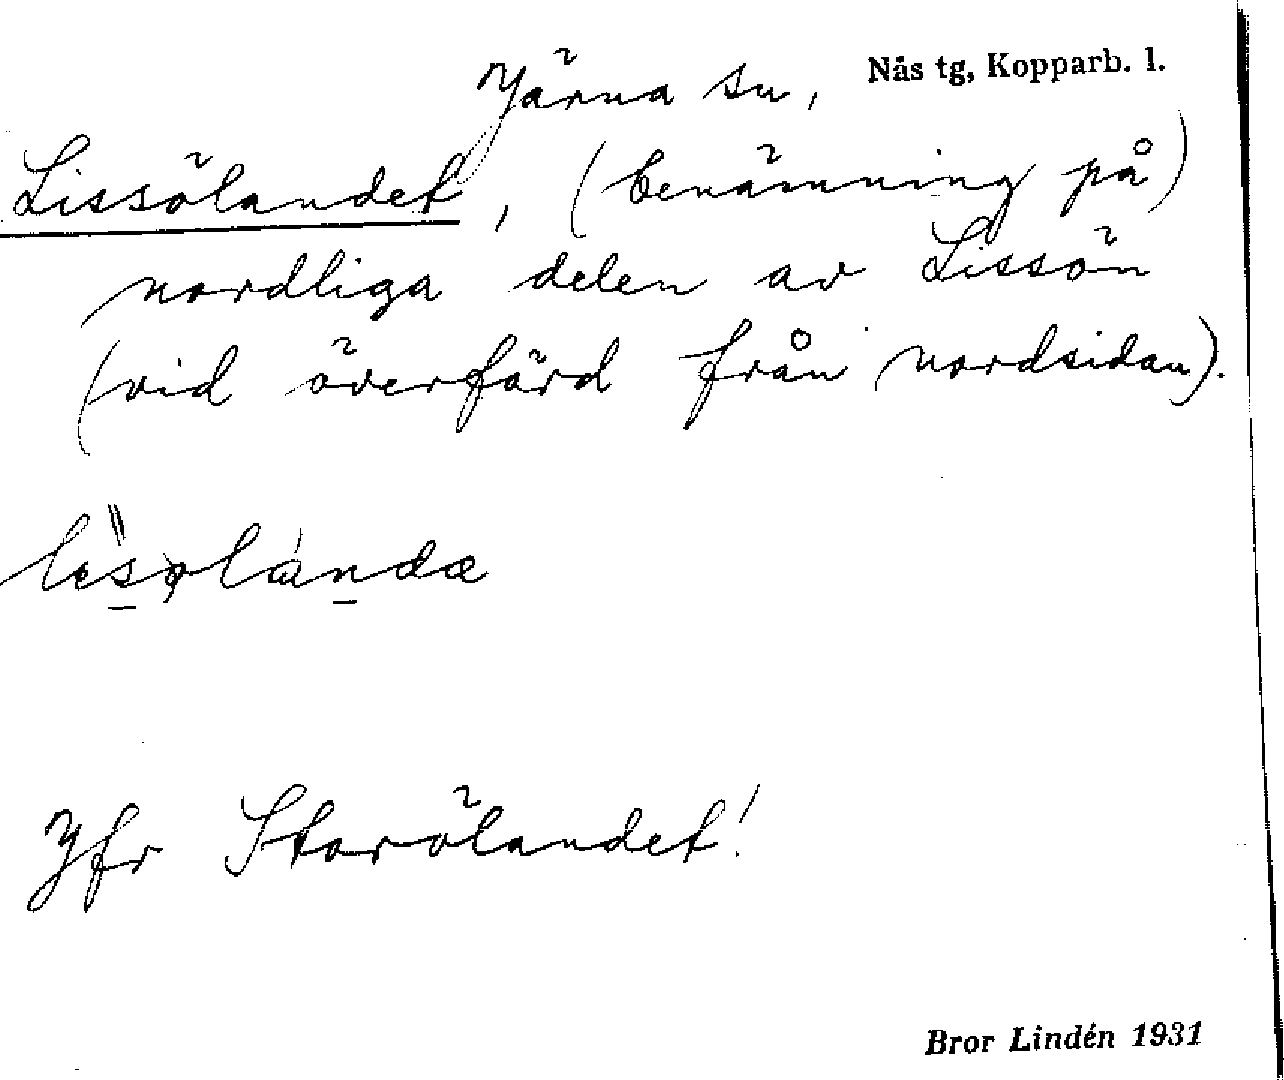 Järna sn, Nås tg, Kopparb. l.
Lissölandet, (benämning på)
nordliga delen av Lissön
(vid överfärd från nordsidan).
Jfr Storölandet!
Bror Lindén 1931